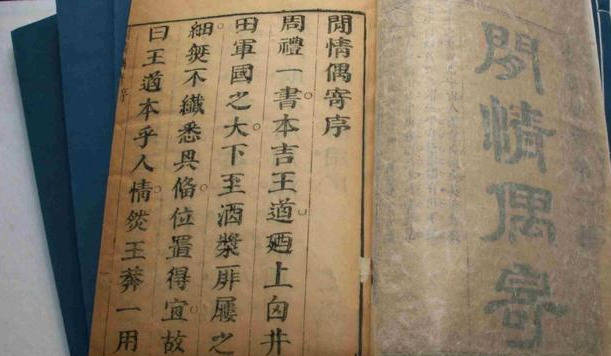 閒情偶寄
閒情偶寄序
周禮一書。本言王道。廼上自井
田軍國之大。下至酒漿屝屨之
細。無不纖悉具備。位置得宜。故
曰王道本乎人情。然王莽一用